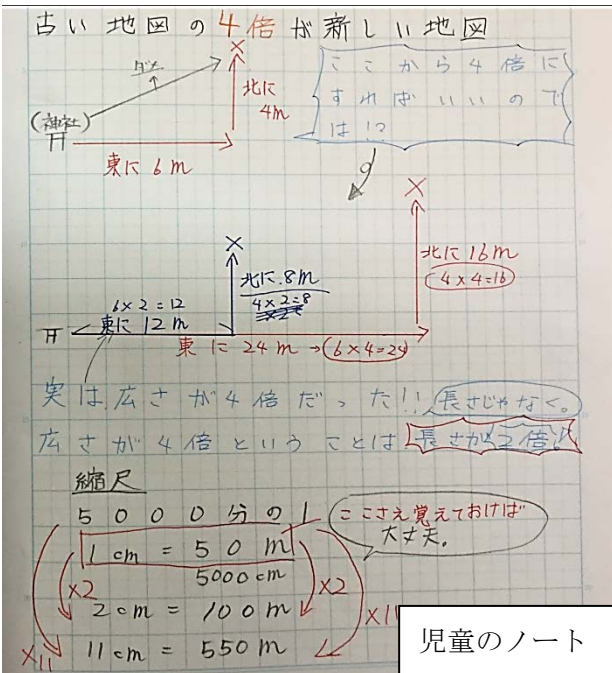 古い地図の4倍が新しい地図
×
ダメ
北に
4m
(神社)
東に6m
ここから4倍に
すればいいので
は!?
×
×
北に16m
4×4=16
北に8m
4×2=8
6×2=12
東に12m
東に24m→6×4=24
実は、広さが4倍だった!!長さじゃなく。
広さが4倍ということは長さが2倍!!
縮尺
5000分の1
ここさえ覚えておけば
大丈夫。
1cm=50m
5000cm
×2
×2
2cm=100m
×11
×11
11cm=550m
児童のノート